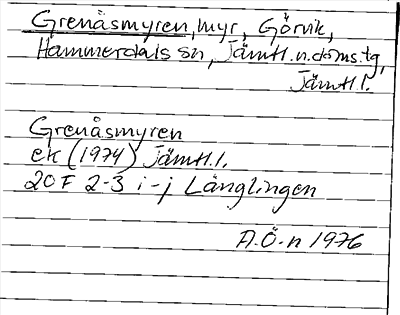 Grenåsmyren, myr, Görvik,
Hammerdals sn, Jämtl.n.doms.tg,
Jämtl l.
Grenåsmyren
ek (1974) Jämtl.l.
20F 2-3 i-j Långlingen
A.Ö-n 1976